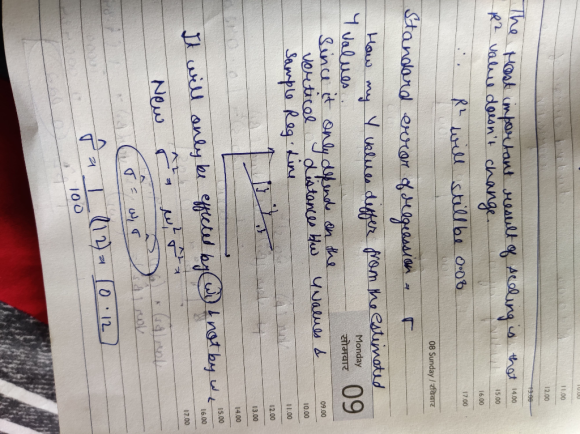 The Most important result of scaling is that
R² value doesn't change.
∴ R² will still be 0.08
08 Sunday / रविवार
Standard error of regression = σ
How my Y values differ from the estimated
Y values.
Monday
सोमवार
09
Since it only depend on the
vertical distances btw Y values &
Sample Reg. Line
It will only be effected by w₁ & not by w₂
New σ̂² = w₁² σ̂² =
σ̂ = w₁ σ̂
σ̂ = 1/100 (12) = 0.12
12.00
13.00
14.00
15.00
16.00
17.00
09.00
10.00
11.00
12.00
13.00
14.00
15.00
16.00
17.00